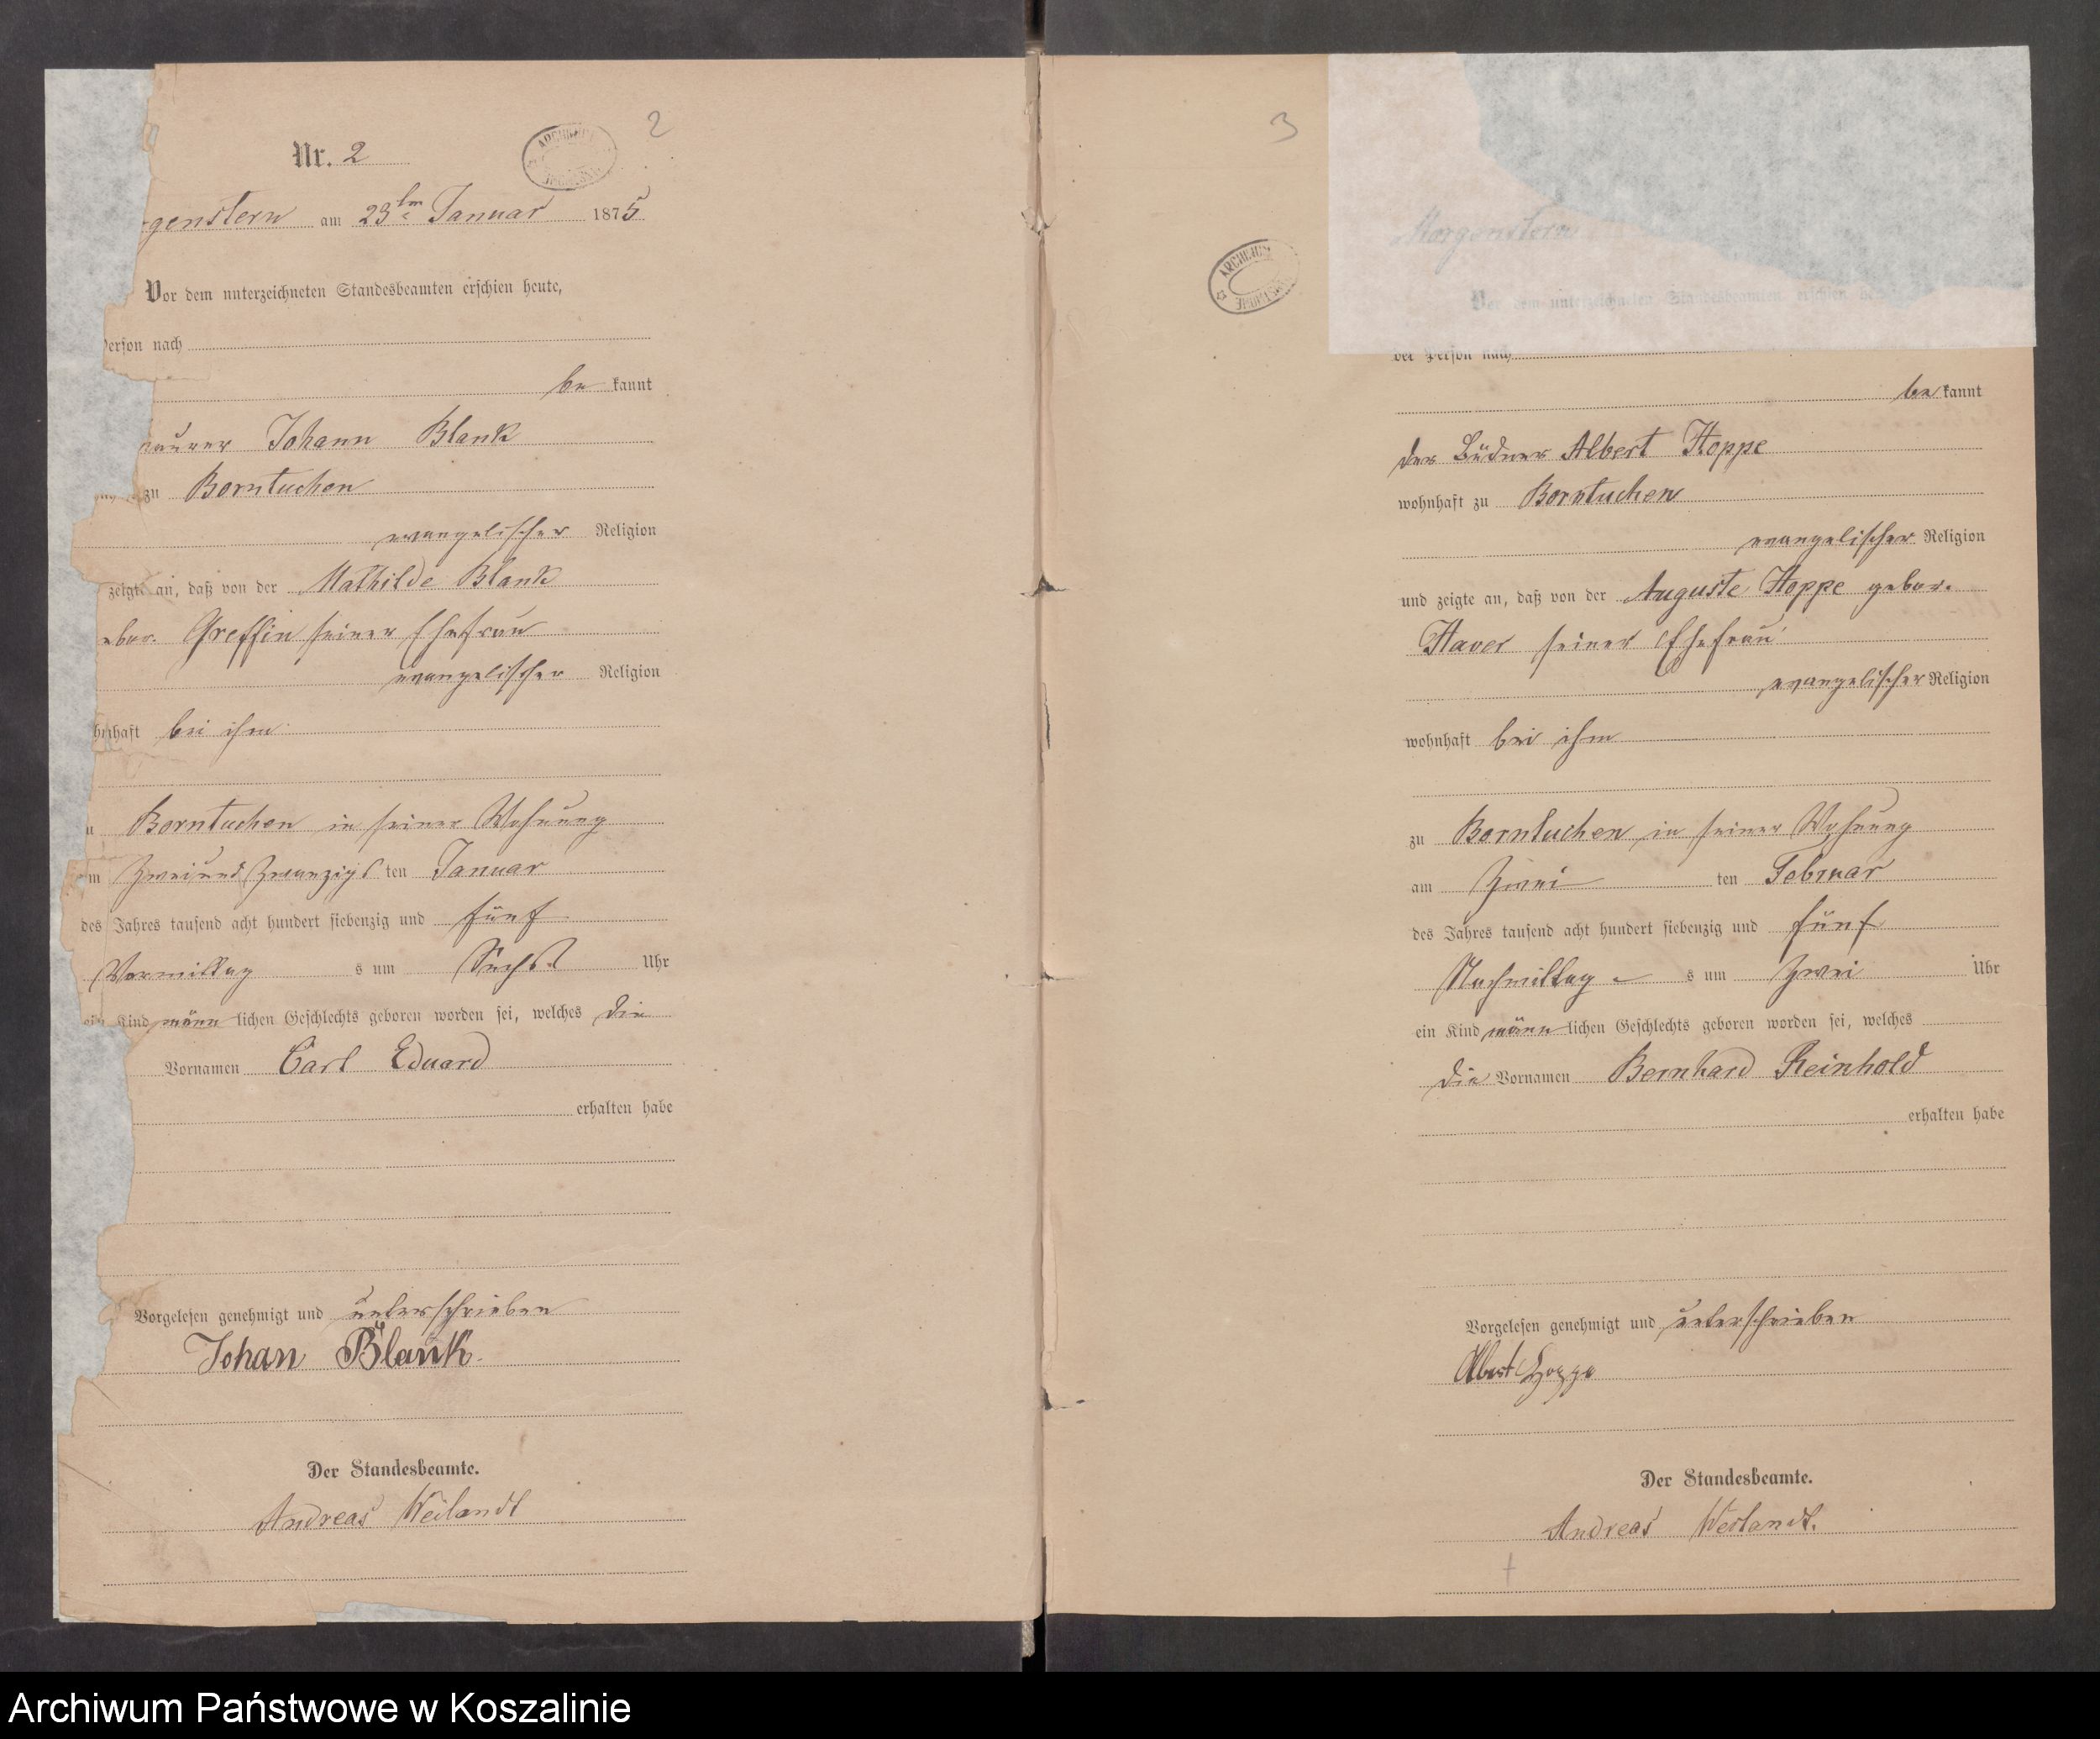 Nr. 2
2
genstern am 23ten Januar 1875
Vor dem unterzeichneten Standesbeamten erschien heute,
Person nach
be kannt
Johann Blank
zu Borntuchen
evangelischer Religion
zeigte an, daß von der Mathilde Blank
gebor. Greffin seiner Ehefrau
evangelischer Religion
wohnhaft bei ihm
Borntuchen in seiner Wohnung
Zweiundzwanzigs ten Januar
des Jahres tausend acht hundert siebenzig und fünf
Vormittag s um Sechs Uhr
ein Kind männ lichen Geschlechts geboren worden sei, welches die
Vornamen Carl Eduard
erhalten habe
Vorgelesen genehmigt und unterschrieben
Johan Blank
Der Standesbeamte.
Andreas Weilandt
3
ARCHIWUM
Morgenstern
Vor dem unterzeichneten Standesbeamten erschien
der Person nach
be kannt
der Büdner Albert Hoppe
wohnhaft zu Borntuchen
evangelischer Religion
und zeigte an, daß von der Auguste Hoppe gebor.
Haver seiner Ehefrau
evangelischer Religion
wohnhaft bei ihm
zu Borntuchen in seiner Wohnung
am Zwei ten Februar
des Jahres tausend acht hundert siebenzig und fünf
Nachmittag s um Zwei Uhr
ein Kind männ lichen Geschlechts geboren worden sei, welches
die Vornamen Bernhard Reinhold
erhalten habe
Vorgelesen genehmigt und unterschrieben
Albert Hoppe
Der Standesbeamte.
Andreas Weilandt.
Archiwum Państwowe w Koszalinie